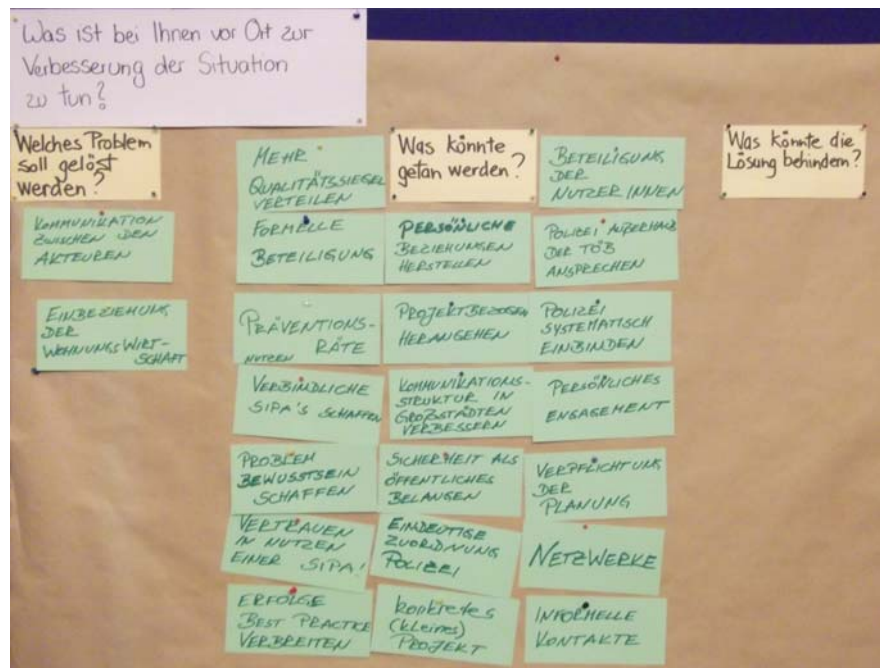 Was ist bei Ihnen vor Ort zur
Verbesserung der Situation
zu tun?
Welches Problem
soll gelöst
werden?
KOMMUNIKATION
ZWISCHEN DEN
AKTEUREN
EINBEZIEHUNG
DER
WOHNUNGSWIRT-
SCHAFT
MEHR
QUALITÄTSSIEGEL
VERTEILEN
FORMELLE
BETEILIGUNG
PRÄVENTIONS-
RÄTE
NUTZEN
VERBINDLICHE
SIPA'S SCHAFFEN
PROBLEM
BEWUSSTSEIN
SCHAFFEN
VERTRAUEN
IN NUTZEN
EINER SIPA!
ERFOLGE
BEST PRACTICE
VERBREITEN
Was könnte
getan werden?
PERSÖNLICHE
BEZIEHUNGEN
HERSTELLEN
PROJEKTBEZOGEN
HERANGEHEN
KOMMUNIKATIONS-
STRUKTUR IN
GROßSTÄDTEN
VERBESSERN
SICHERHEIT ALS
ÖFFENTLICHES
BELANGEN
EINDEUTIGE
ZUORDNUNG
POLIZEI
konkretes
(kleines)
PROJEKT
BETEILIGUNG
DER
NUTZER INNEN
POLIZEI AUßERHALB
DER TÖB
ANSPRECHEN
POLIZEI
SYSTEMATISCH
EINBINDEN
PERSÖNLICHES
ENGAGEMENT
VERPFLICHTUNG
DER
PLANUNG
NETZWERKE
INFORMELLE
KONTAKTE
Was könnte die
Lösung behindern?